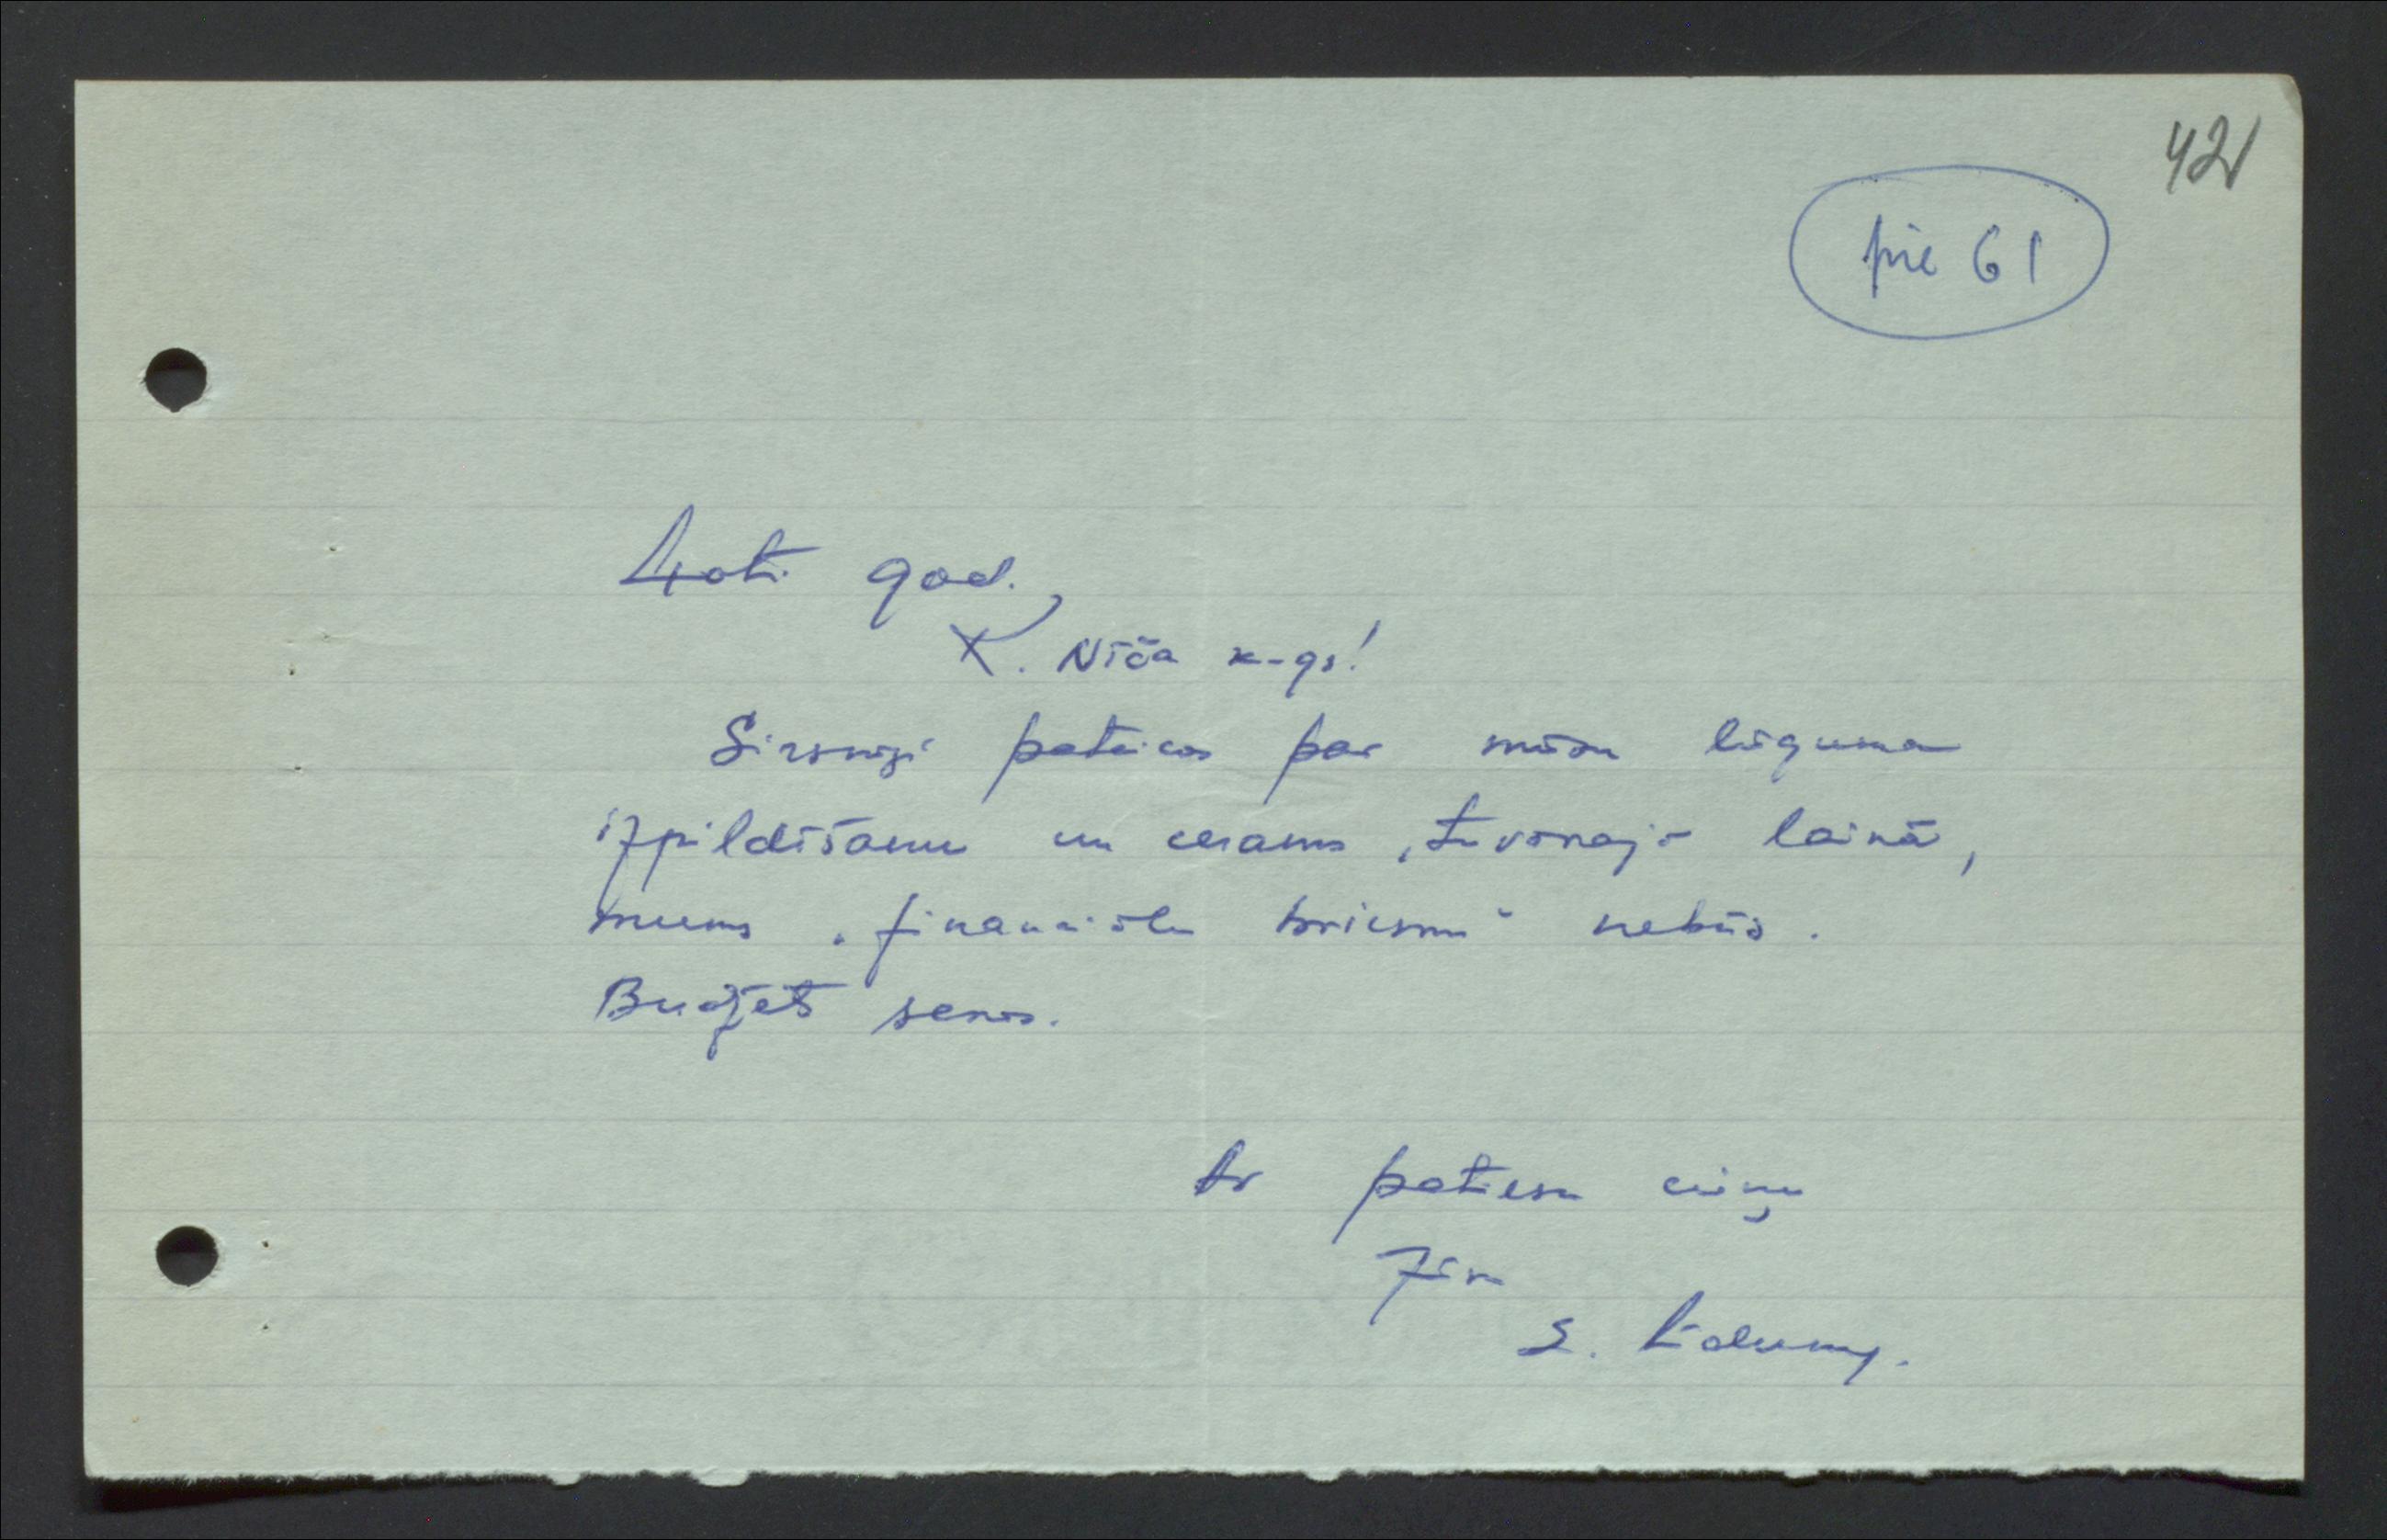 42
pie 61
Ļoti god.
K. Nīča k-gs!
Sirsnīgi pateicos par mūsu lūguma
izpildīšanu un ceram, tuvākajā laikā,
mums "financiālu briesmu" nebūs.
Budžets
Ar patiesu cieņu
Jūsu